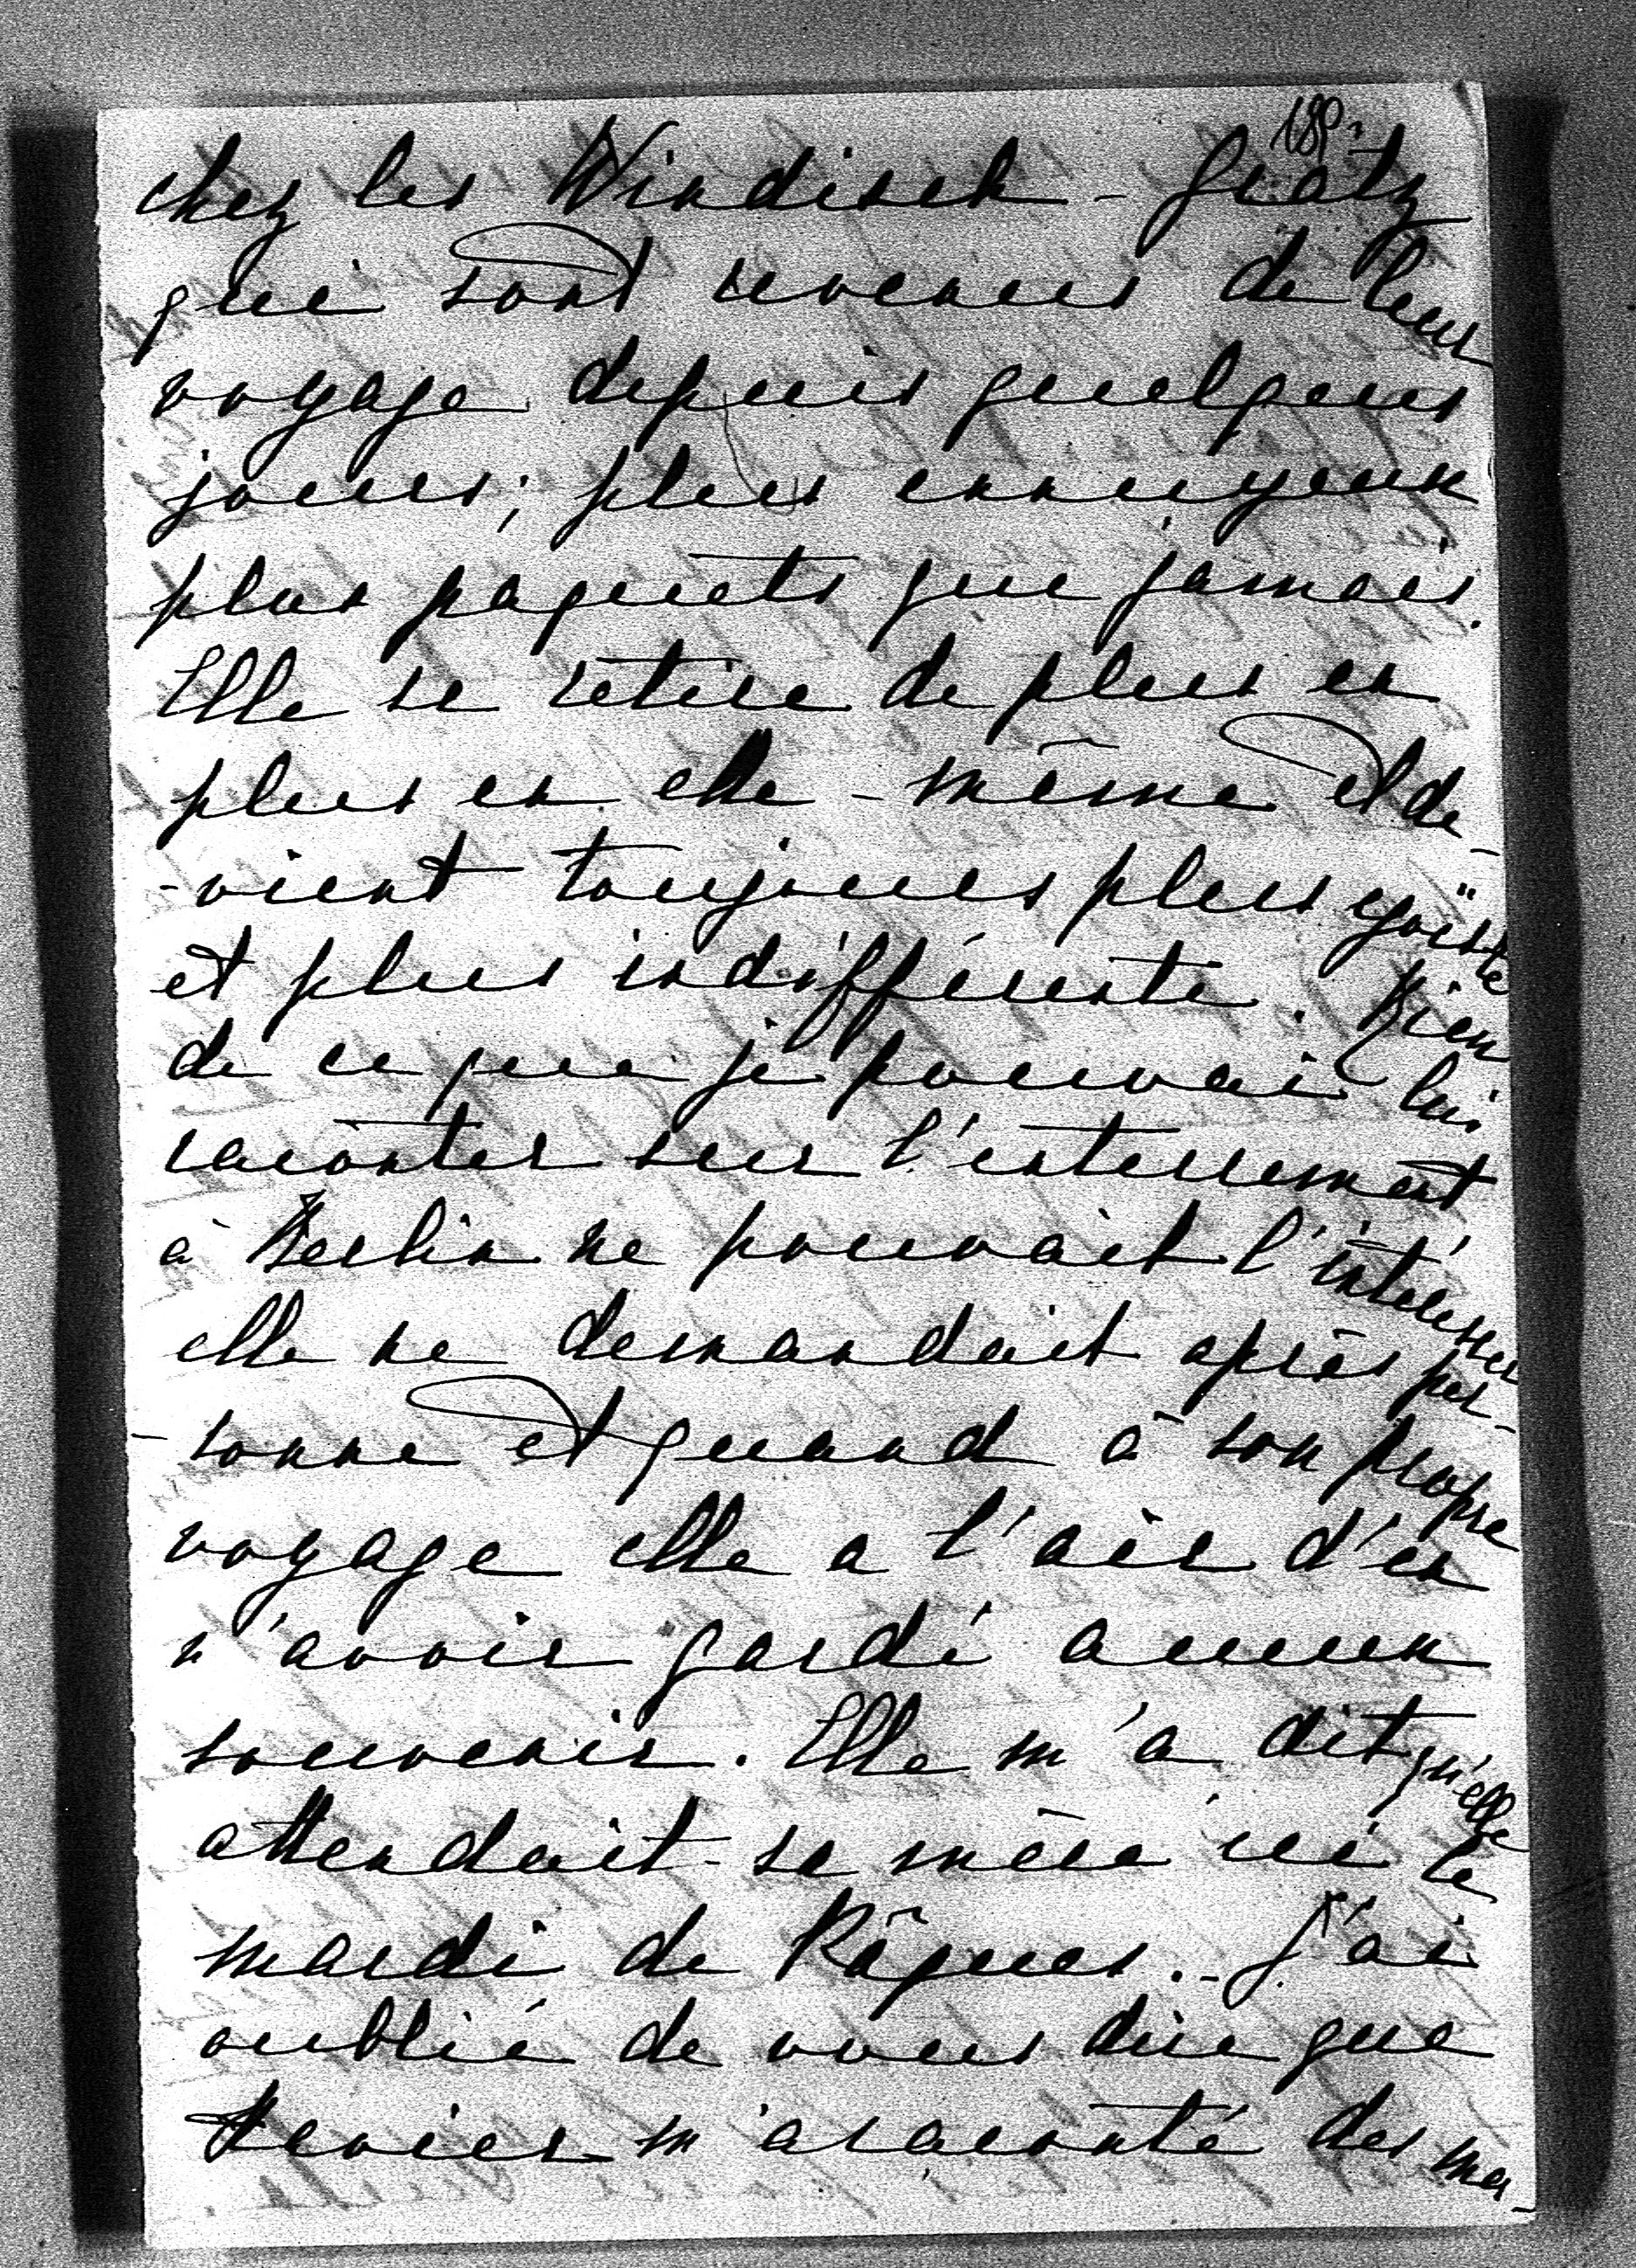 189.
chez les Windisch-Gratz
qui sont revenus de leur
voyage depuis quelques
jours; plus ennuyeux
plus paquets que jamais.
Elle se retire de plus en
plus en elle-même et de-
-vient toujours plus egoïste
et plus indifférente. Rien
de ce que je pouvais lui
raconter sur l'enterrement
à Berlin ne pouvait l'intéresser
elle ne demandait après per-
-sonne et quand à son propre
voyage elle a l'air d'en
n'avoir gardé aucun
souvenir. Elle m'a dit qu'elle
attendait sa mère ici le
mardi de Pâques. - J'ai
oublié de vous dire que
m'a raconté des mer-